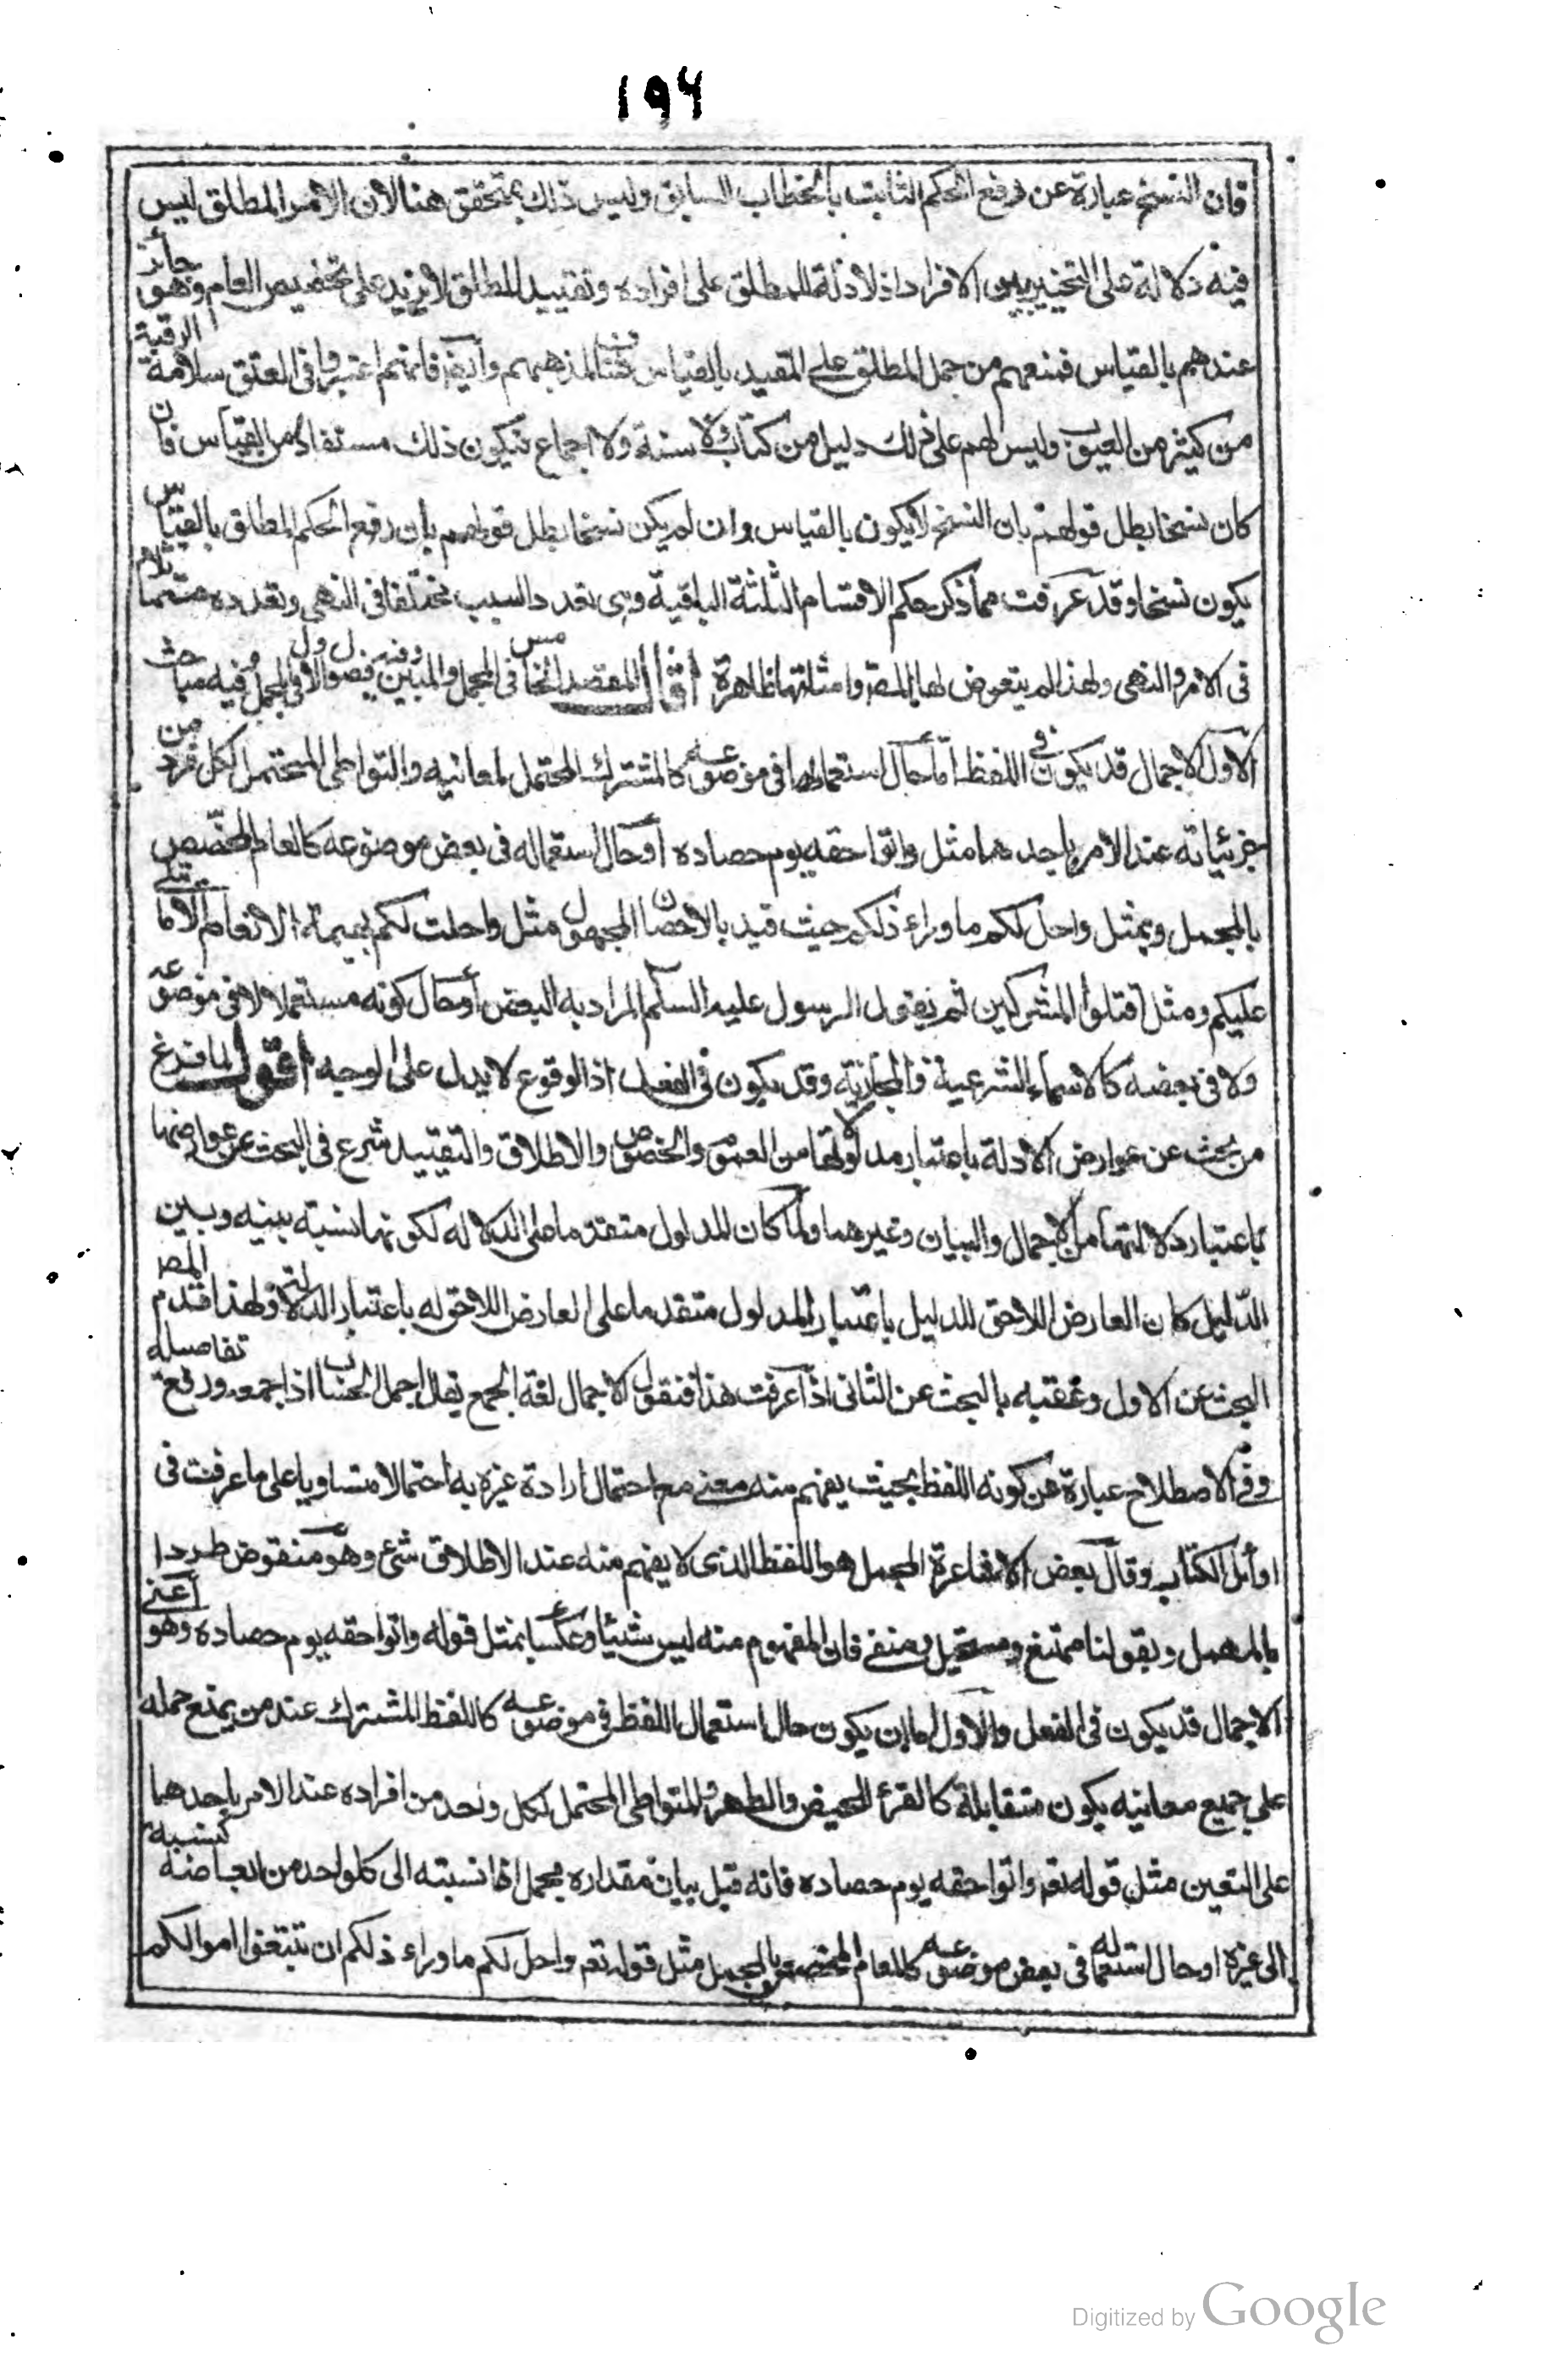 ۱۹۶
فان النسخ عبارة عن رفع الحكم الثابت بالخطاب السابق وليس ذلك بمتحقق هنا لان الامر المطلق ليس
فيه دلالة على التخيير بين الافراد اذ لا دلالة للمطلق على افراده وتقييد المطلق لا يزيد على تخصيص العام وهو جائز
عندهم بالقياس فمنعهم من حمل المطلق على المقيد بالقياس مناف لمذهبهم وايضا فانهم اعتبروا فى المعتق سلامة الرقبة
من كثير من العيوب وليس لهم على ذلك دليل من كتاب ولا سنة ولا اجماع فيكون ذلك مستفادا من القياس فان
كان نسخا بطل قولهم بان النسخ لا يكون بالقياس وان لم يكن نسخا بطل قولهم بان رفع الحكم المطلق بالقياس
يكون نسخا وقد عرفت مما ذكر حكم الاقسام الثلثة الباقية وهى تعدد السبب مختلفا فى النهى وتعدده متماثلا
فى الامر والنهى ولهذا لم يتعرض لها المص وامثلتها ظاهرة اقول المقصد الخامس فى المجمل والمبين وفيه فصول الاول فى المجمل وفيه مباحث
الاول الاجمال قد يكون فى اللفظ اما حال استعماله فى موضوعه كالمشترك المحتمل لمعانيه والمتواطى المحتمل لكل فرد من
جزئياته عند الامر باحدهما مثل واتوا حقه يوم حصاده او حال استعماله فى بعض موضوعه كالعام المخصص
بالمجمل وبمثل واحل لكم ما وراء ذلكم حيث قيد بالاحصان المجهول مثل واحلت لكم بهيمة الانعام الا ما يتلى
عليكم ومثل اقتلوا المشركين ثم يقول الرسول عليه السلم المراد به البعض او حال كونه مستعملا لا فى موضوعه
ولا فى بعضه كالاسماء الشرعية والمجازية وقد يكون فى الفعل اذ الوقوع لا يدل على الوجه اقول لما فرغ
من بحث عن عوارض الادلة باعتبار مدلولاتها من العموم والخصوص والاطلاق والتقييد شرع فى البحث عن عوارضها
باعتبار دلالتها من الاجمال والبيان وغيرهما ولما كان المدلول متقدما على الدلاله لكونها نسبته بينه وبين
الدليل كان العارض اللاحق للدليل باعتبار المدلول متقدما على العارض اللاحق له باعتبار الدلالة ولهذا قدم المص
البحث عن الاول وعقبه بالبحث عن الثانى اذا عرفت هذا فنقول الاجمال لغة الجمع يقال اجمل الحساب اذا جمعه ورفع تفاصيله
وفى الاصطلاح عبارة عن كونه اللفظ بحيث يفهم منه معنى مع احتمال ارادة غيره به احتمالا متساويا على ما عرفت فى
اوائل الكتاب وقال بعض الاشاعرة المجمل هو اللفظ الذى لا يفهم منه عند الاطلاق شئ وهو منقوض طردا
بالمهمل وبقولنا ممتنع ومستحيل ومنفى فان المفهوم منه ليس شيئا وعكسا بمثل قوله واتوا حقه يوم حصاده وهو اعنى
الاجمال قد يكون فى الفعل والاول اما ان يكون حال استعمال اللفظ فى موضوعه كاللفظ المشترك عند من يمنع حمله
على جميع معانيه يكون متقابلة كالقرء للحيض والطهر والمتواطى المحتمل لكل واحد من افراده عند الامر باحدهما
على التعين مثل قوله تعم واتوا حقه يوم حصاده فانه قبل بيان مقداره مجمل اذا نسبته الى كل واحد من ابعاضه كنسبته
الى غيره او حال استعماله فى بعض موضوعه كالعام المخصوص بالمجمل مثل قوله تعم واحل لكم ما وراء ذلكم ان تبتغوا اموالكم
Digitized by Google